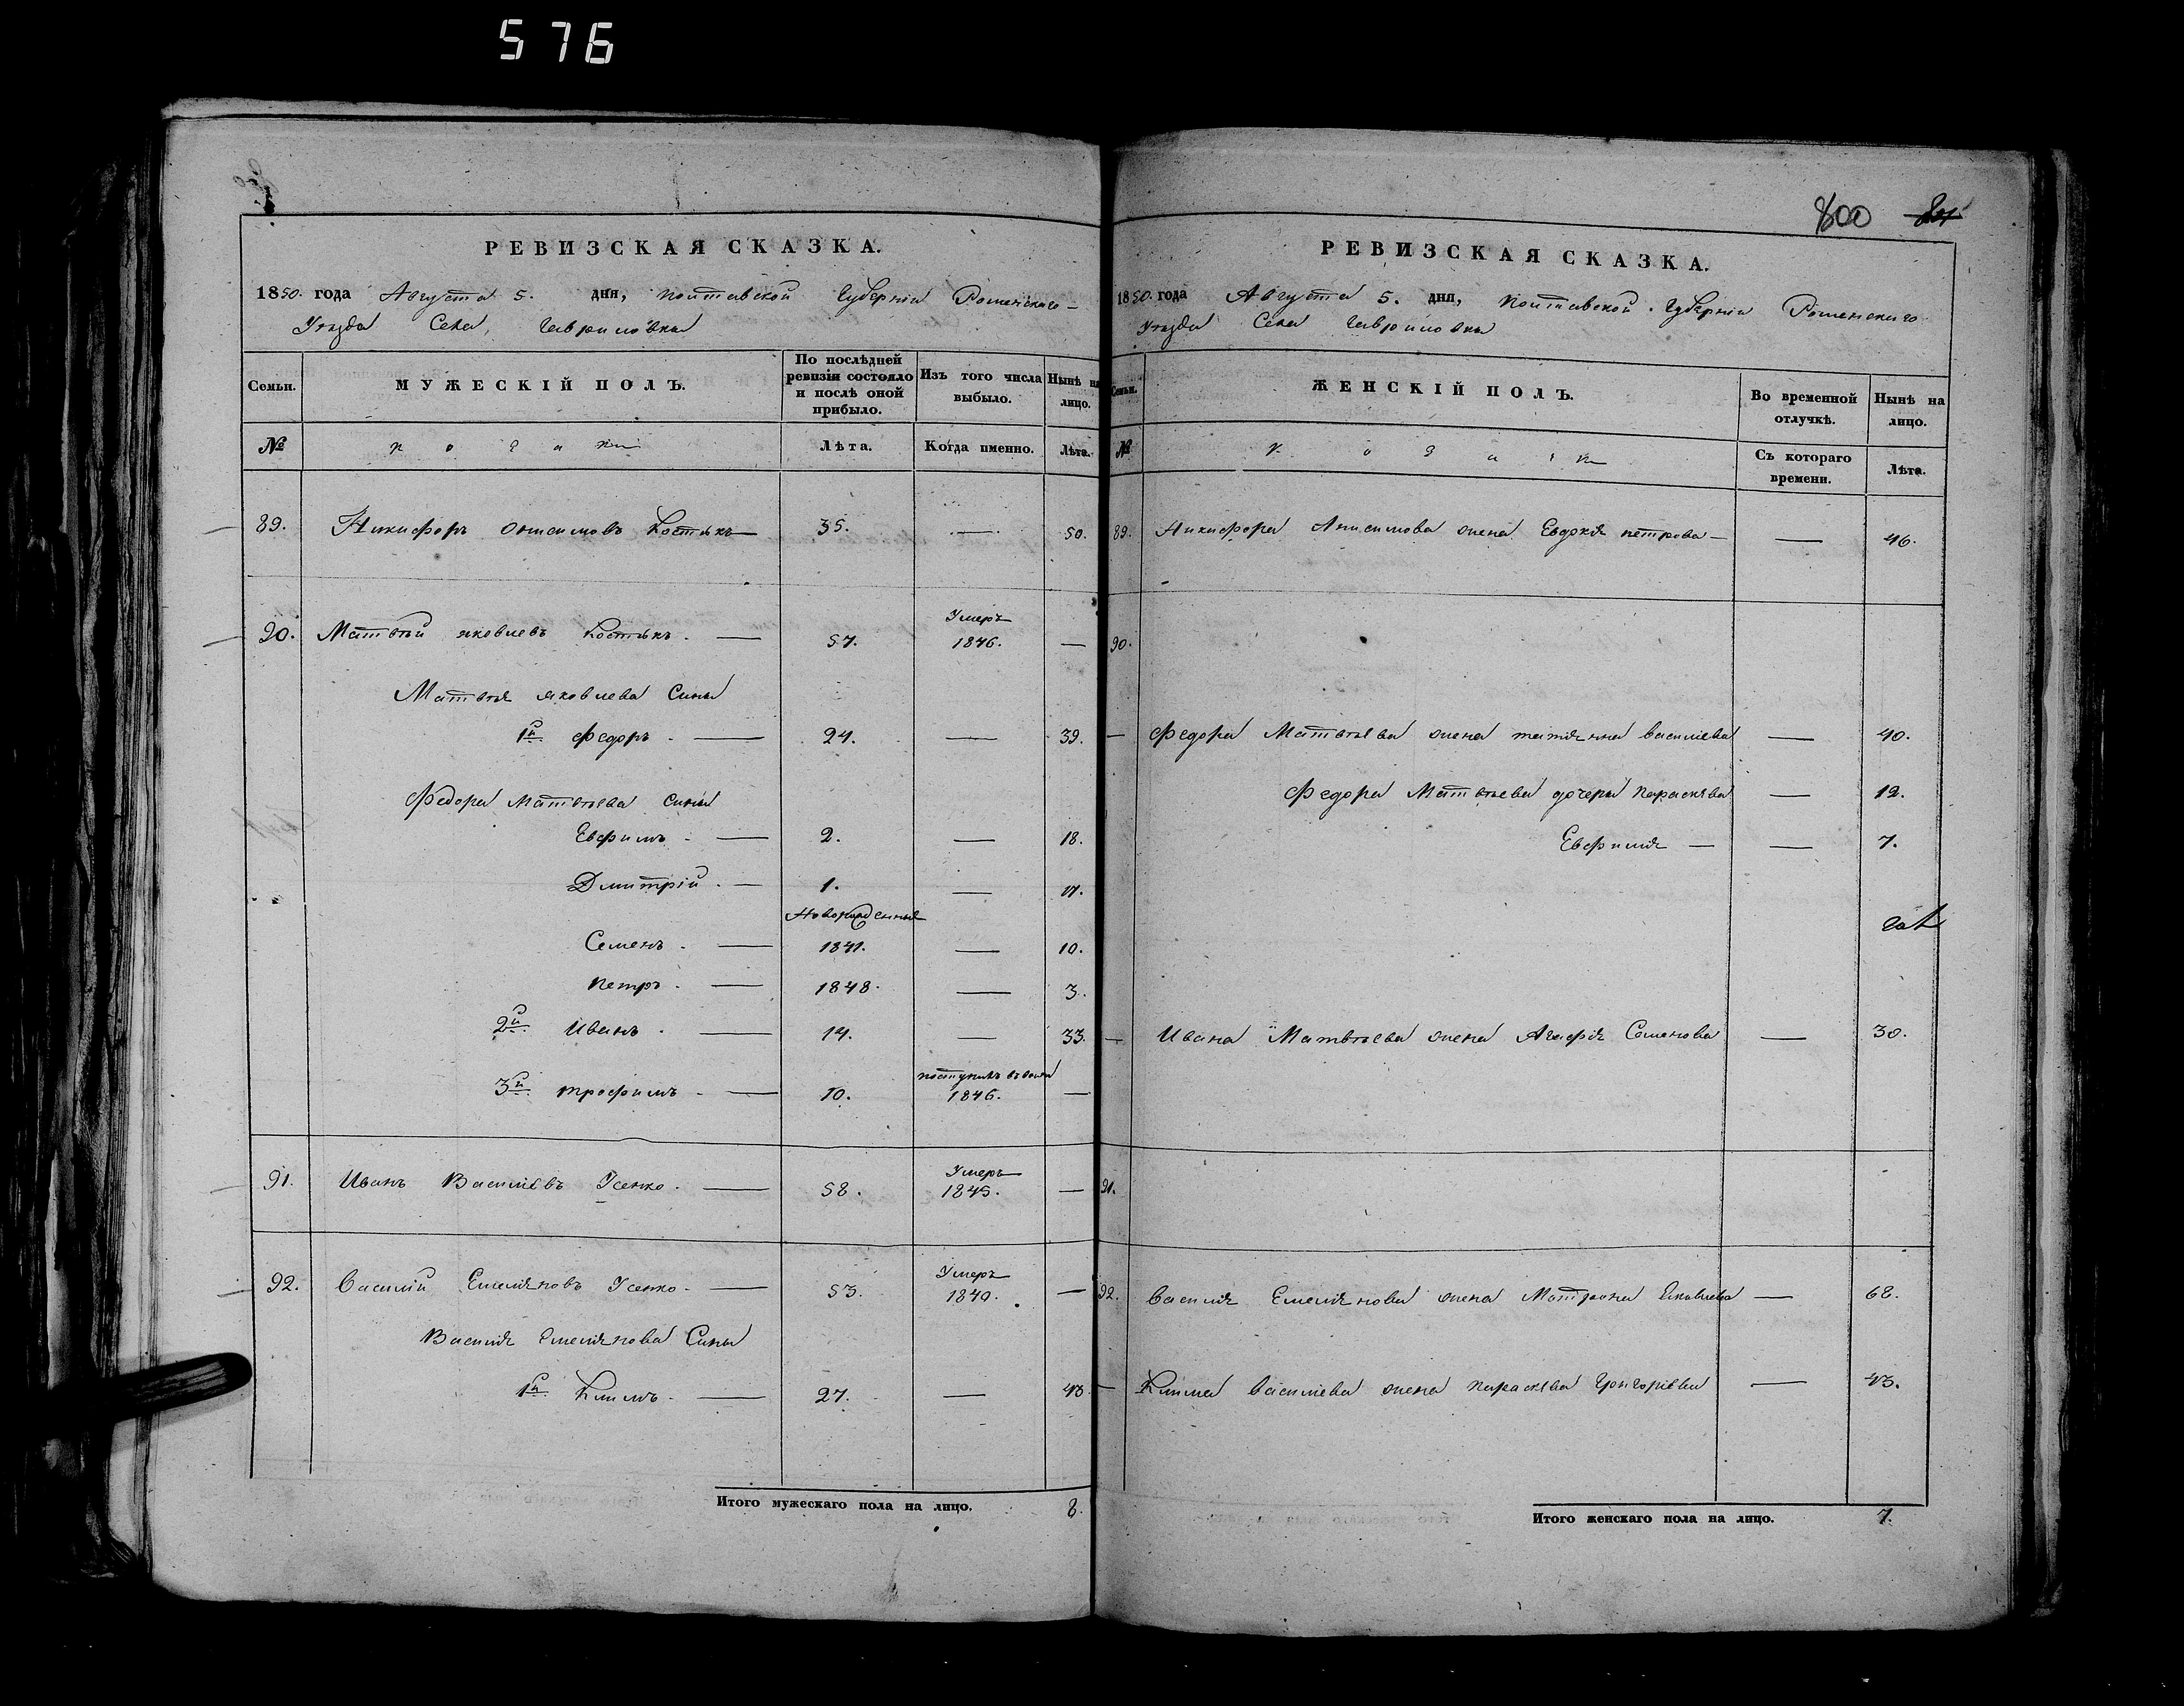 576
800
РЕВИЗСКАЯ СКАЗКА.
1850. года Августа 5. дня, полтавской Губерніи Роменскаго
Уѣзда Села Гавриловки
Семьи. МУЖЕСКІЙ ПОЛЪ. По послѣдней ревизіи состояло и послѣ оной прибыло. Изъ того числа выбыло. Нынѣ на лицо.
№ Лѣта. Когда именно. Лѣта.
89. Никифоръ Онисимовъ 35. — 50.
90. Матвѣй яковлевъ 57. Умеръ 1846. —
Матвѣя яковлева Сины
1й Федоръ — 24. — 39.
Федора Матвѣева сины
Евфимъ — 2. — 18.
Дмитрій — 1. — 17.
Новорожденные
Семенъ — 1841. — 10.
петръ — 1848. — 3.
2й Иванъ — 14. — 33.
3й трофимъ — 10. 1846. —
91. Иванъ Василіевъ Усенко — 58. Умеръ 1845. —
92. Василій Емеляновъ Усенко — 53. Умеръ 1840. —
Василя Емелянова Сины
1й Климъ — 27. — 43
Итого мужескаго пола на лицо. 8.
РЕВИЗСКАЯ СКАЗКА.
1850. года Августа 5. дня, полтавской Губерніи Роменскаго
Уѣзда Села Гавриловки
Семьи. ЖЕНСКІЙ ПОЛЪ. Во временной отлучкѣ. Нынѣ на лицо.
№ Съ котораго времени. Лѣта.
89. Никифора Анисимова жена Евдокія петрова — — 46.
90.
— Федора Матвѣева жена татіянна василіева — 40.
Федора Матвѣева дочери параскева — 12.
Евфимія — — 7.
— Ивана Матвѣева жена Агафія Семенова — 30.
91.
92. Василя Емелянова жена Матрона — 68.
— Клима василіева жена параскева Григоріева — 43.
Итого женскаго пола на лицо. 7.